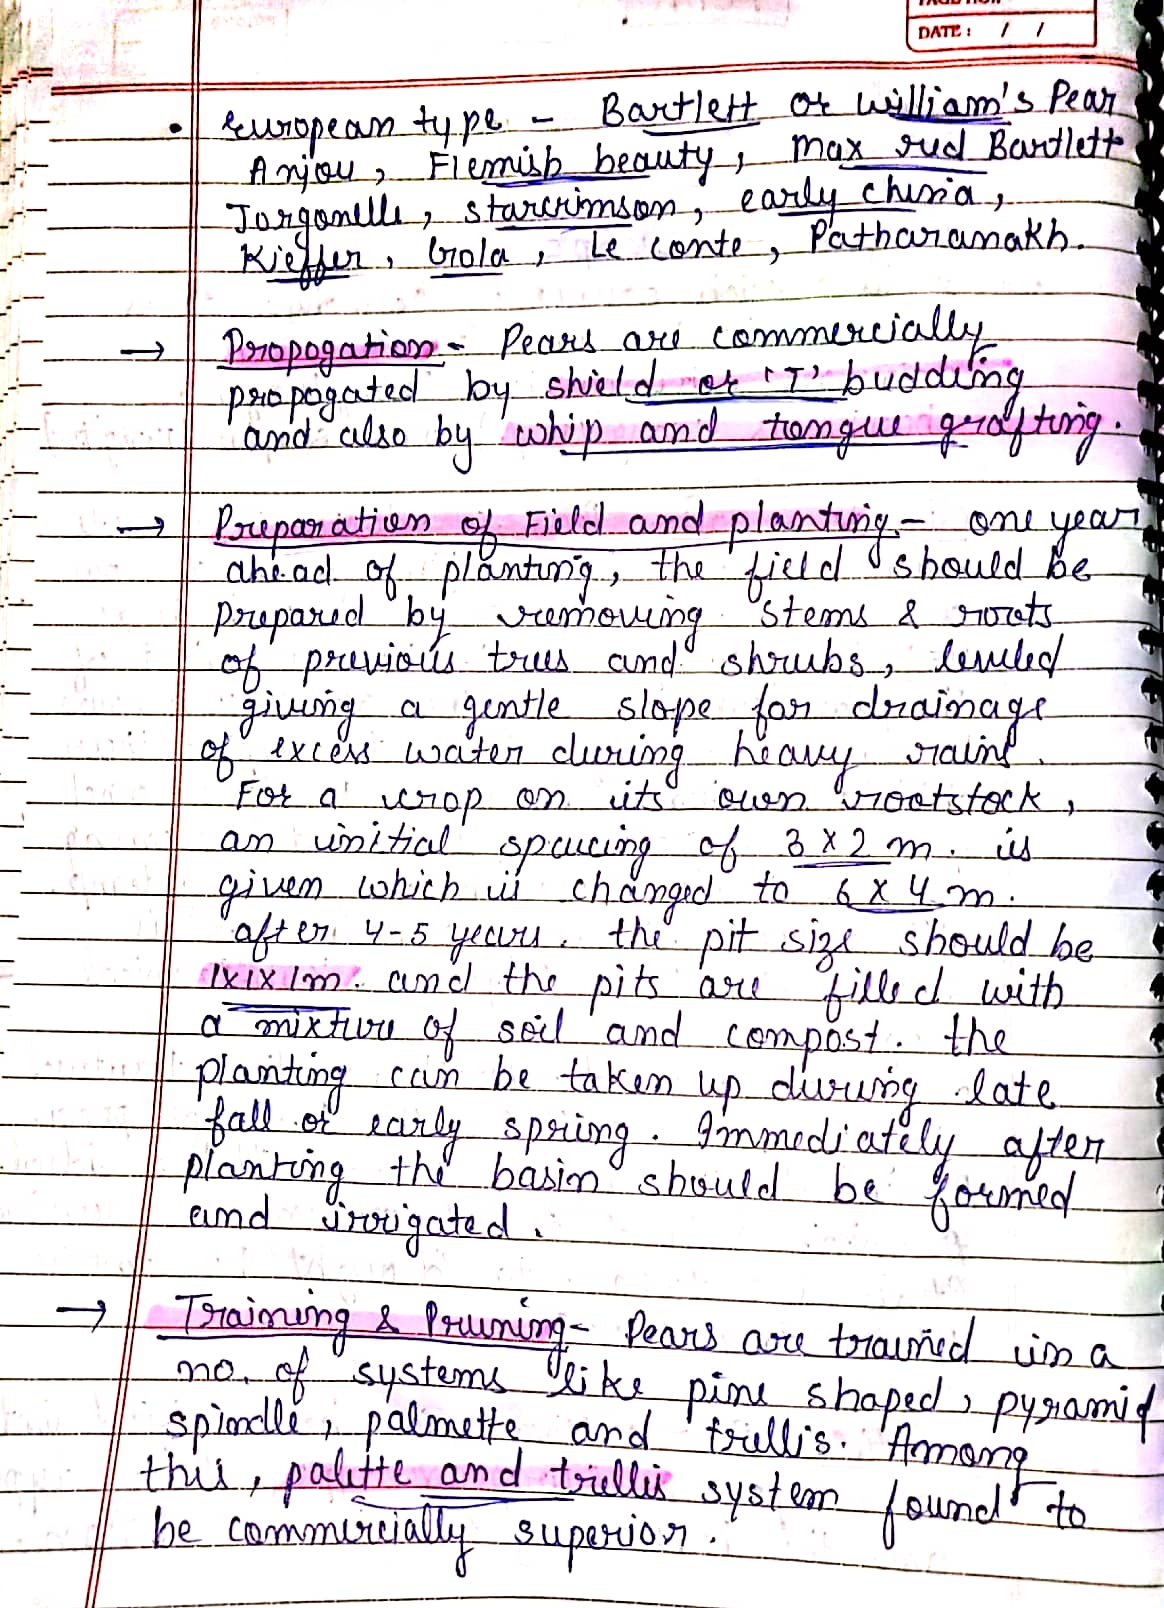 DATE : / /
• European type - Bartlett or william's Pear
Anjou, Flemish beauty, Max red Bartlett
Jorgonelle, starcrimson, early china,
Kieffer, Gola, Le conte, Patharanakh.
→ Propogation - Pears are commercially
propogated by shield or 'T' budding
and also by whip and tongue grafting.
→ Preparation of Field and planting - one year
ahead of planting, the field should be
prepared by removing stems & roots
of previous trees and shrubs, leveled
giving a gentle slope for drainage
of excess water during heavy rains.
For a crop on its own rootstock,
an initial spacing of 3 x 2 m. is
given which is changed to 6 x 4 m.
after 4-5 years. the pit size should be
1x1x1m. and the pits are filled with
a mixture of soil and compost. the
planting can be taken up during late
fall or early spring. Immediately after
planting the basin should be formed
and irrigated.
→ Training & Pruning - Pears are trained in a
no. of systems like pine shaped, pyramid
spindle, palmette and trellis. Among
this, palette and trellis system found to
be commercially superior.